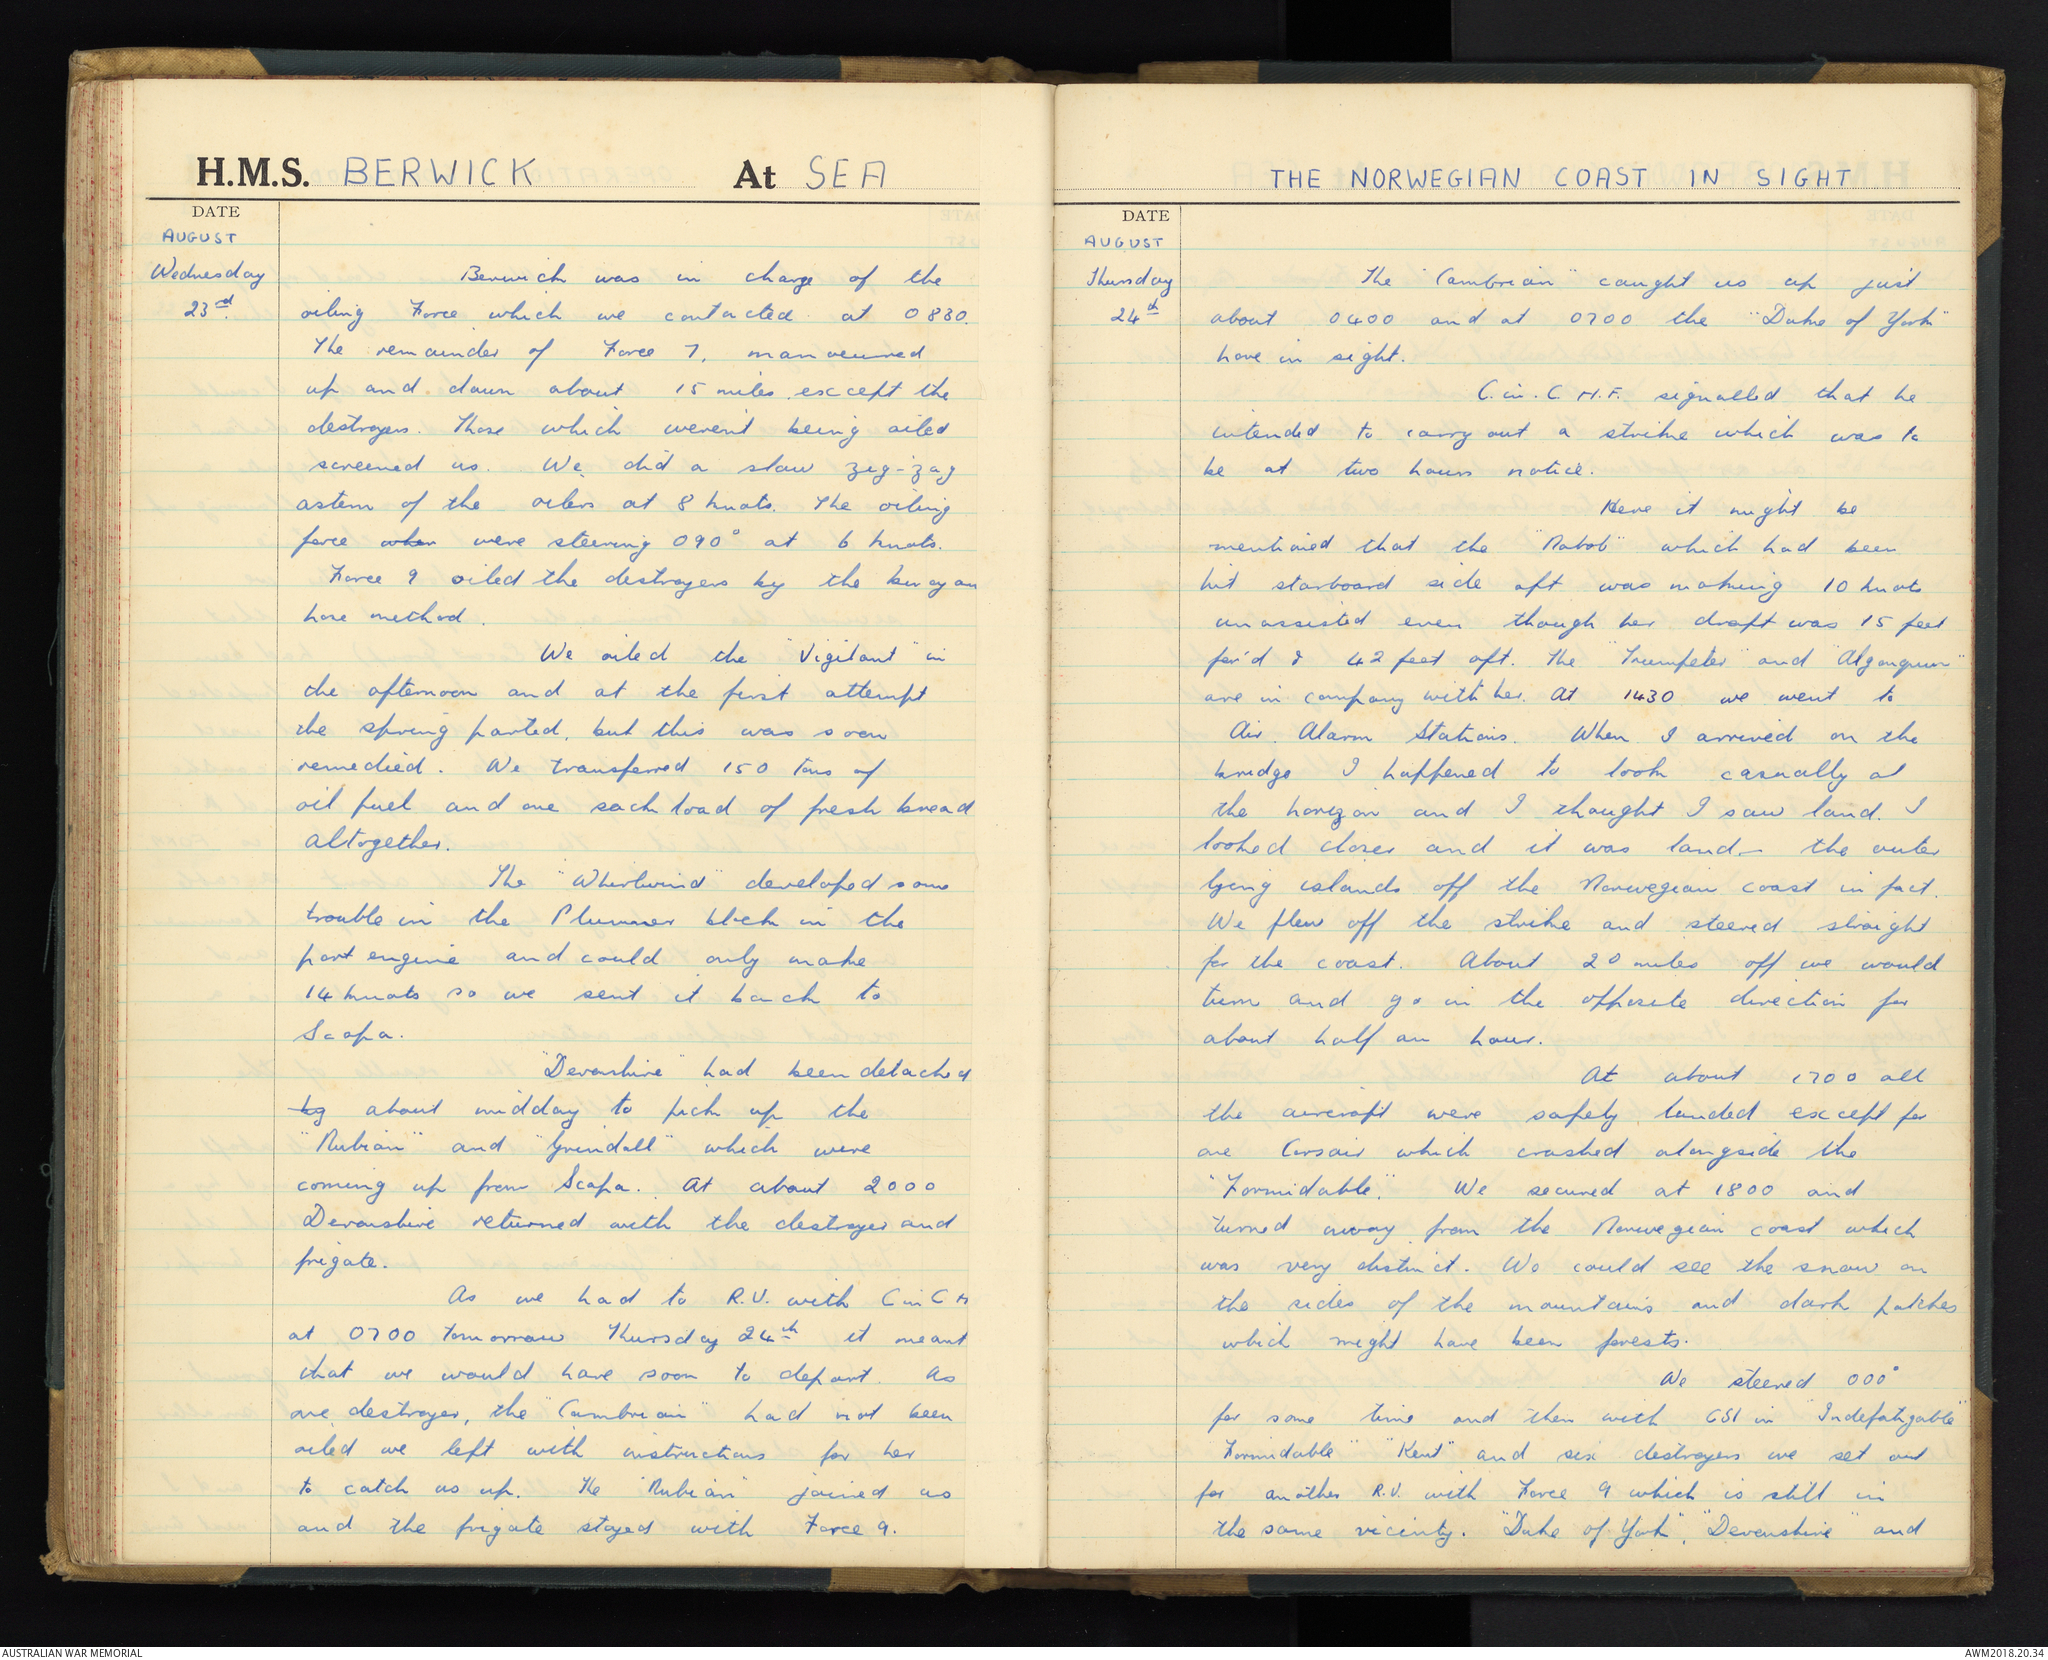 H.M.S. BERWICK At SEA
DATE
AUGUST
Wednesday
23rd.
Berwick was in charge of the
oiling Force which we contacted at 0830.
The remainder of Force 7, manoeuvred
up and down about 15 miles except the
destroyers. Those which weren't being oiled
screened us. We did a slow zig-zag
astern of the oilers at 8 knots. The oiling
force when were steering 090° at 6 knots.
Force 9 oiled the destroyers by the buoyan
hose method.
We oiled the "Vigilant" in
the afternoon and at the first attempt
the spring parted, but this was soon
remedied. We transferred 150 tons of
oil fuel and one sack load of fresh bread
altogether.
The "Whirlwind" developed some
trouble in the Plummer block in the
port engine and could only make
14 knots so we sent it back to
Scapa.
"Devonshire" had been detached
by about midday to pick up the
"Nubian" and "Grindall" which were
coming up from Scapa. At about 2000
Devonshire returned with the destroyer and
frigate.
As we had to R.V. with C in C H
at 0700 tomorrow Thursday 24th it meant
that we would have soon to depart. As
one destroyer, the "Cambrian" had not been
oiled we left with instructions for her
to catch us up. The "Nubian" joined us
and the frigate stayed with Force 9.
THE NORWEGIAN COAST IN SIGHT
DATE
AUGUST
Thursday
24th
The "Cambrian" caught us up just
about 0400 and at 0700 the "Duke of York"
hove in sight.
C. in. C H.F. signalled that he
intended to carry out a strike which was to
be at two hours notice.
Here it might be
mentioned that the "Nabob" which had been
hit starboard side aft was making 10 knots
unassisted even though her draft was 15 feet
for'd & 42 feet aft. The "Trumpeter" and "Algonquin"
are in company with her. At 1430 we went to
Air Alarm Stations. When I arrived on the
bridge I happened to look casually at
the horizon and I thought I saw land. I
looked closer and it was land - the outer
lying islands off the Norwegian coast in fact.
We flew off the strike and steered straight
for the coast. About 20 miles off we would
turn and go in the opposite direction for
about half an hour.
At about 1700 all
the aircraft were safely landed except for
one Corsair which crashed alongside the
"Formidable". We secured at 1800 and
turned away from the Norwegian coast which
was very distinct. We could see the snow on
the sides of the mountains and dark patches
which might have been forests.
We steered 000°
for some time and then with CS1 in "Indefatigable"
"Formidable" "Kent" and six destroyers we set out
for another R.V. with Force 9 which is still in
the same vicinity. "Duke of York", "Devonshire" and
AUSTRALIAN WAR MEMORIAL
AWM2018.20.34